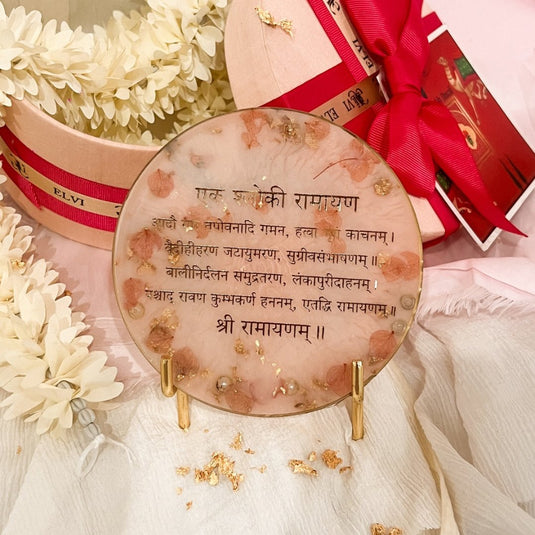 एक श्लोकी रामायण
तपोवनादि गमन, हत्वा काचनम्।
वैदीहीहरण जटायुमरण, सुग्रीवसंभाषणम्॥
बालीनिर्दलन समुद्रतरण, लंकापुरीदाहनम्।
रावण कुम्भकर्ण हननम्, एतद्धि रामायणम्॥
श्री रामायणम्॥
ELVI
ELVI
ELVI